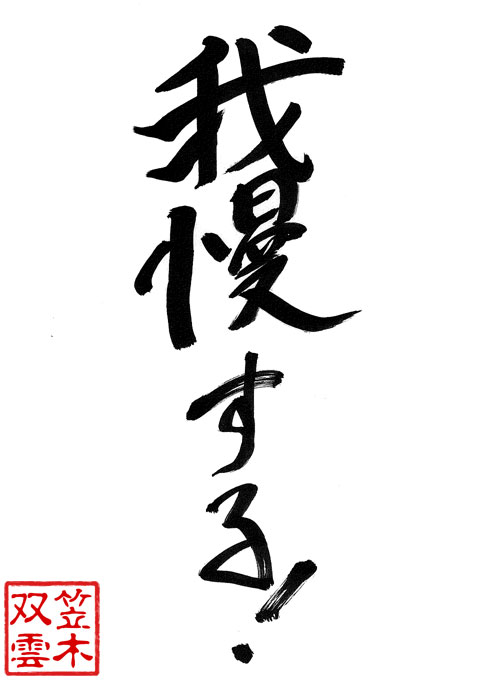 我慢する!
笠木
双雲